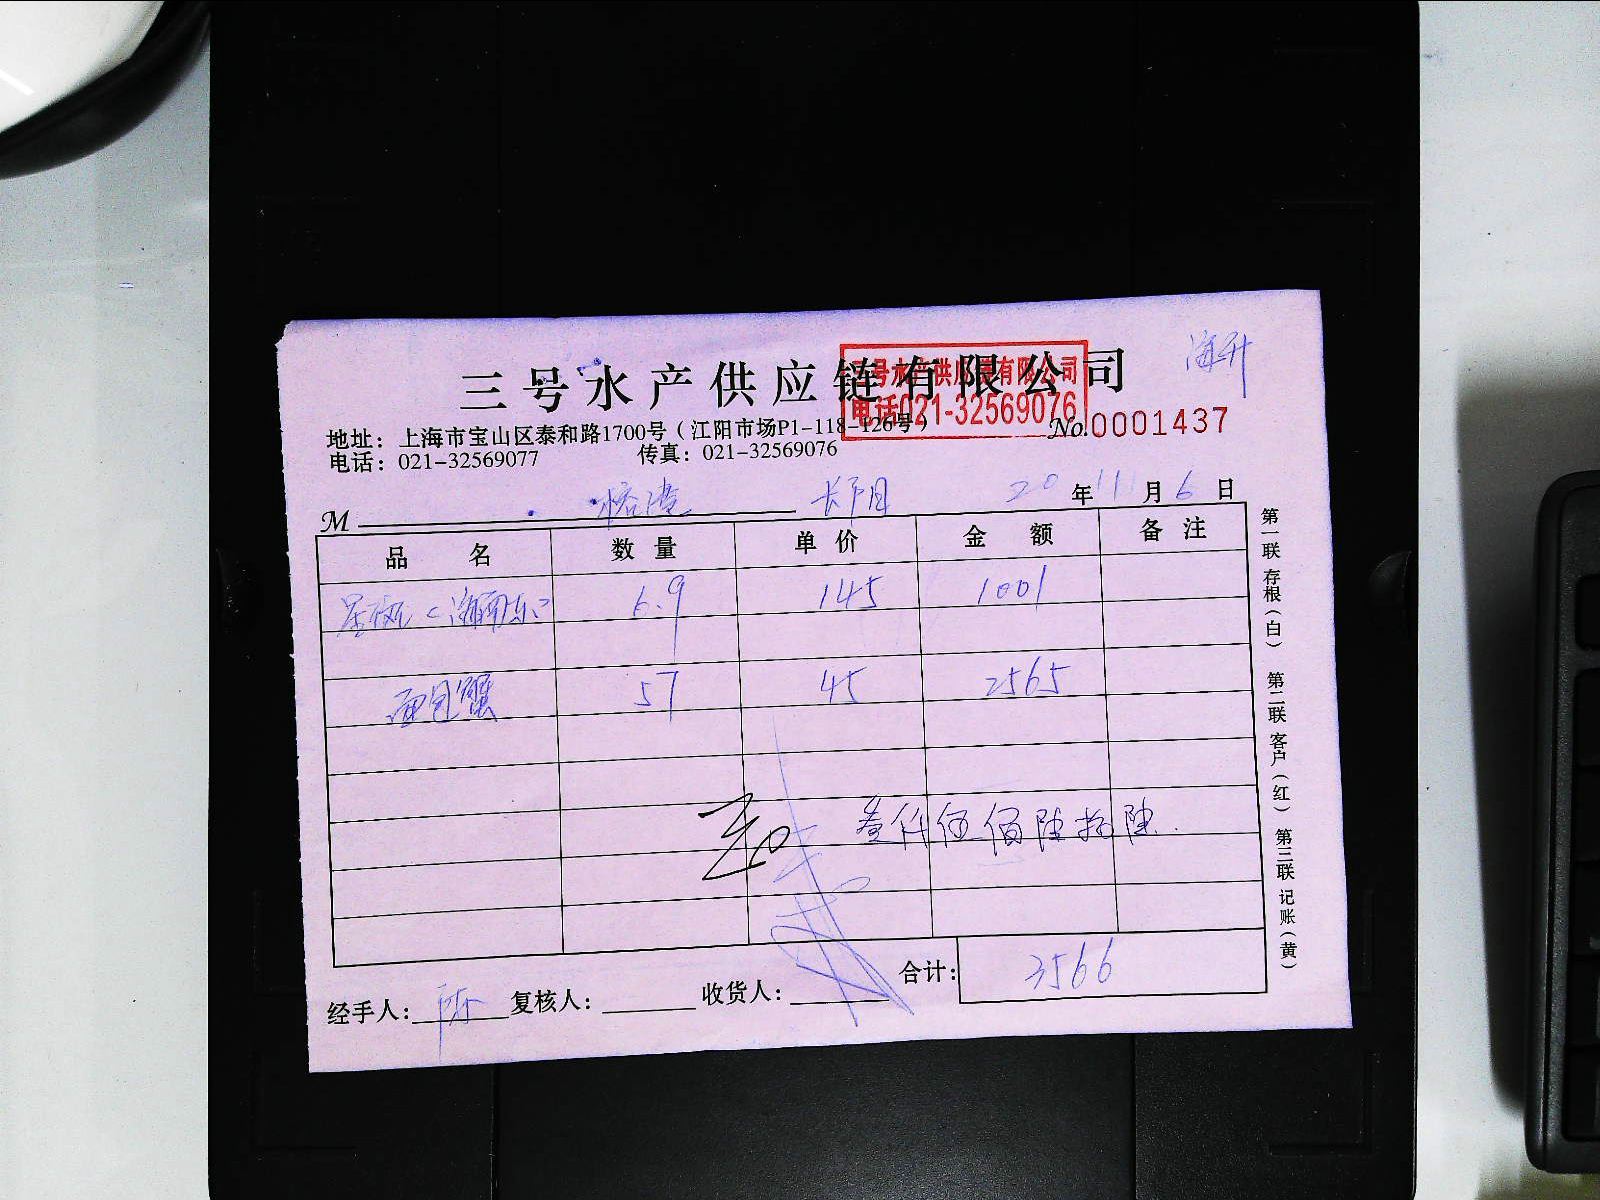 海升
三号水产供应链有限公司
三号水产供应链有限公司
电话021-32569076
地址：上海市宝山区泰和路1700号（江阳市场P1-118-126号）
No.0001437
电话：021-32569077 传真：021-32569076
M 20年11月6日
品名 数量 单价 金额 备注
6.9 145 1001
面包蟹 57 45 2565
叁仟伍佰陆拾陆
合计：3566
经手人：陈 复核人： 收货人：
第一联存根（白） 第二联客户（红） 第三联记账（黄）